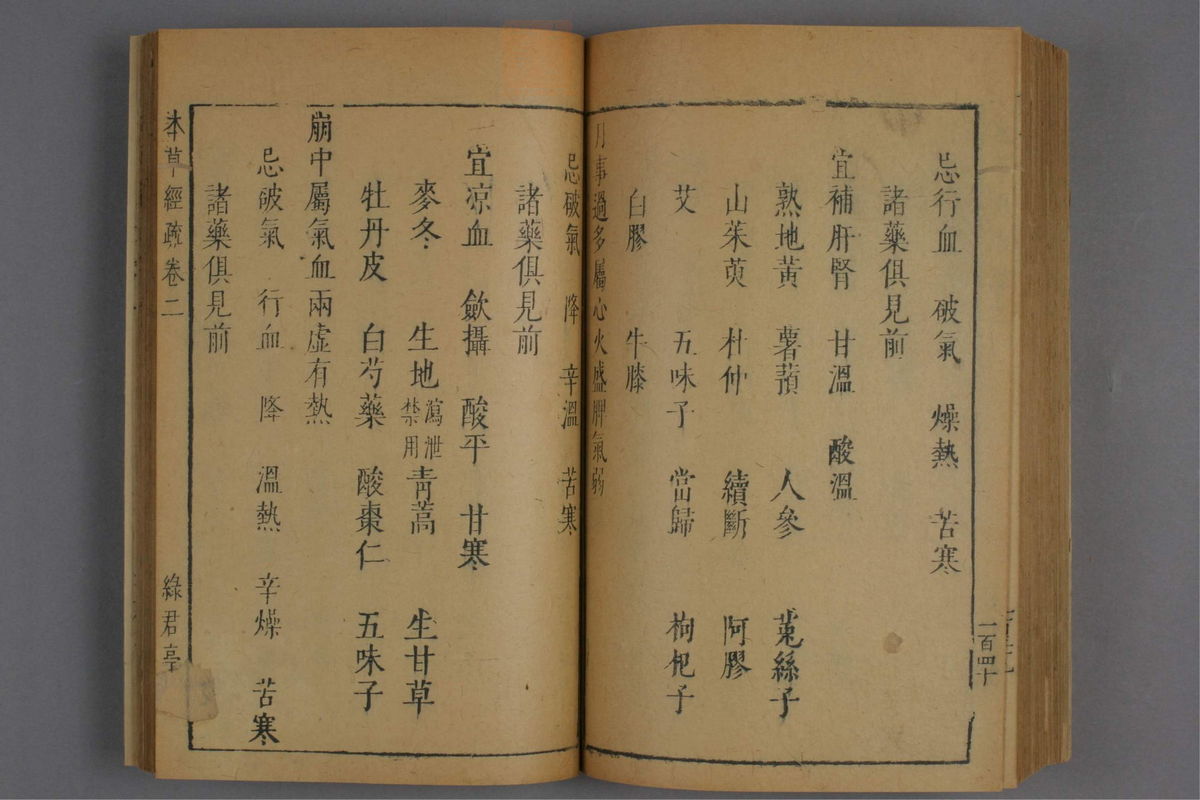 忌行血　破氣　燥熱　苦寒
諸藥俱見前
宜補肝腎　甘溫　酸溫
熟地黃　薯蕷　人參　菟絲子
山茱萸　杜仲　續斷　阿膠
艾　五味子　當歸　枸杞子
白膠　牛膝
月事過多屬心火盛脾氣弱
忌破氣　降　辛溫　苦寒
諸藥俱見前
宜凉血　斂攝　酸平　甘寒
麥冬　生地瀉泄禁用青蒿　生甘草
牡丹皮　白芍藥　酸棗仁　五味子
崩中屬氣血兩虛有熱
忌破氣　行血　降　溫熱　辛燥　苦寒
諸藥俱見前
本草經疏卷二　綠君亭
一百四十